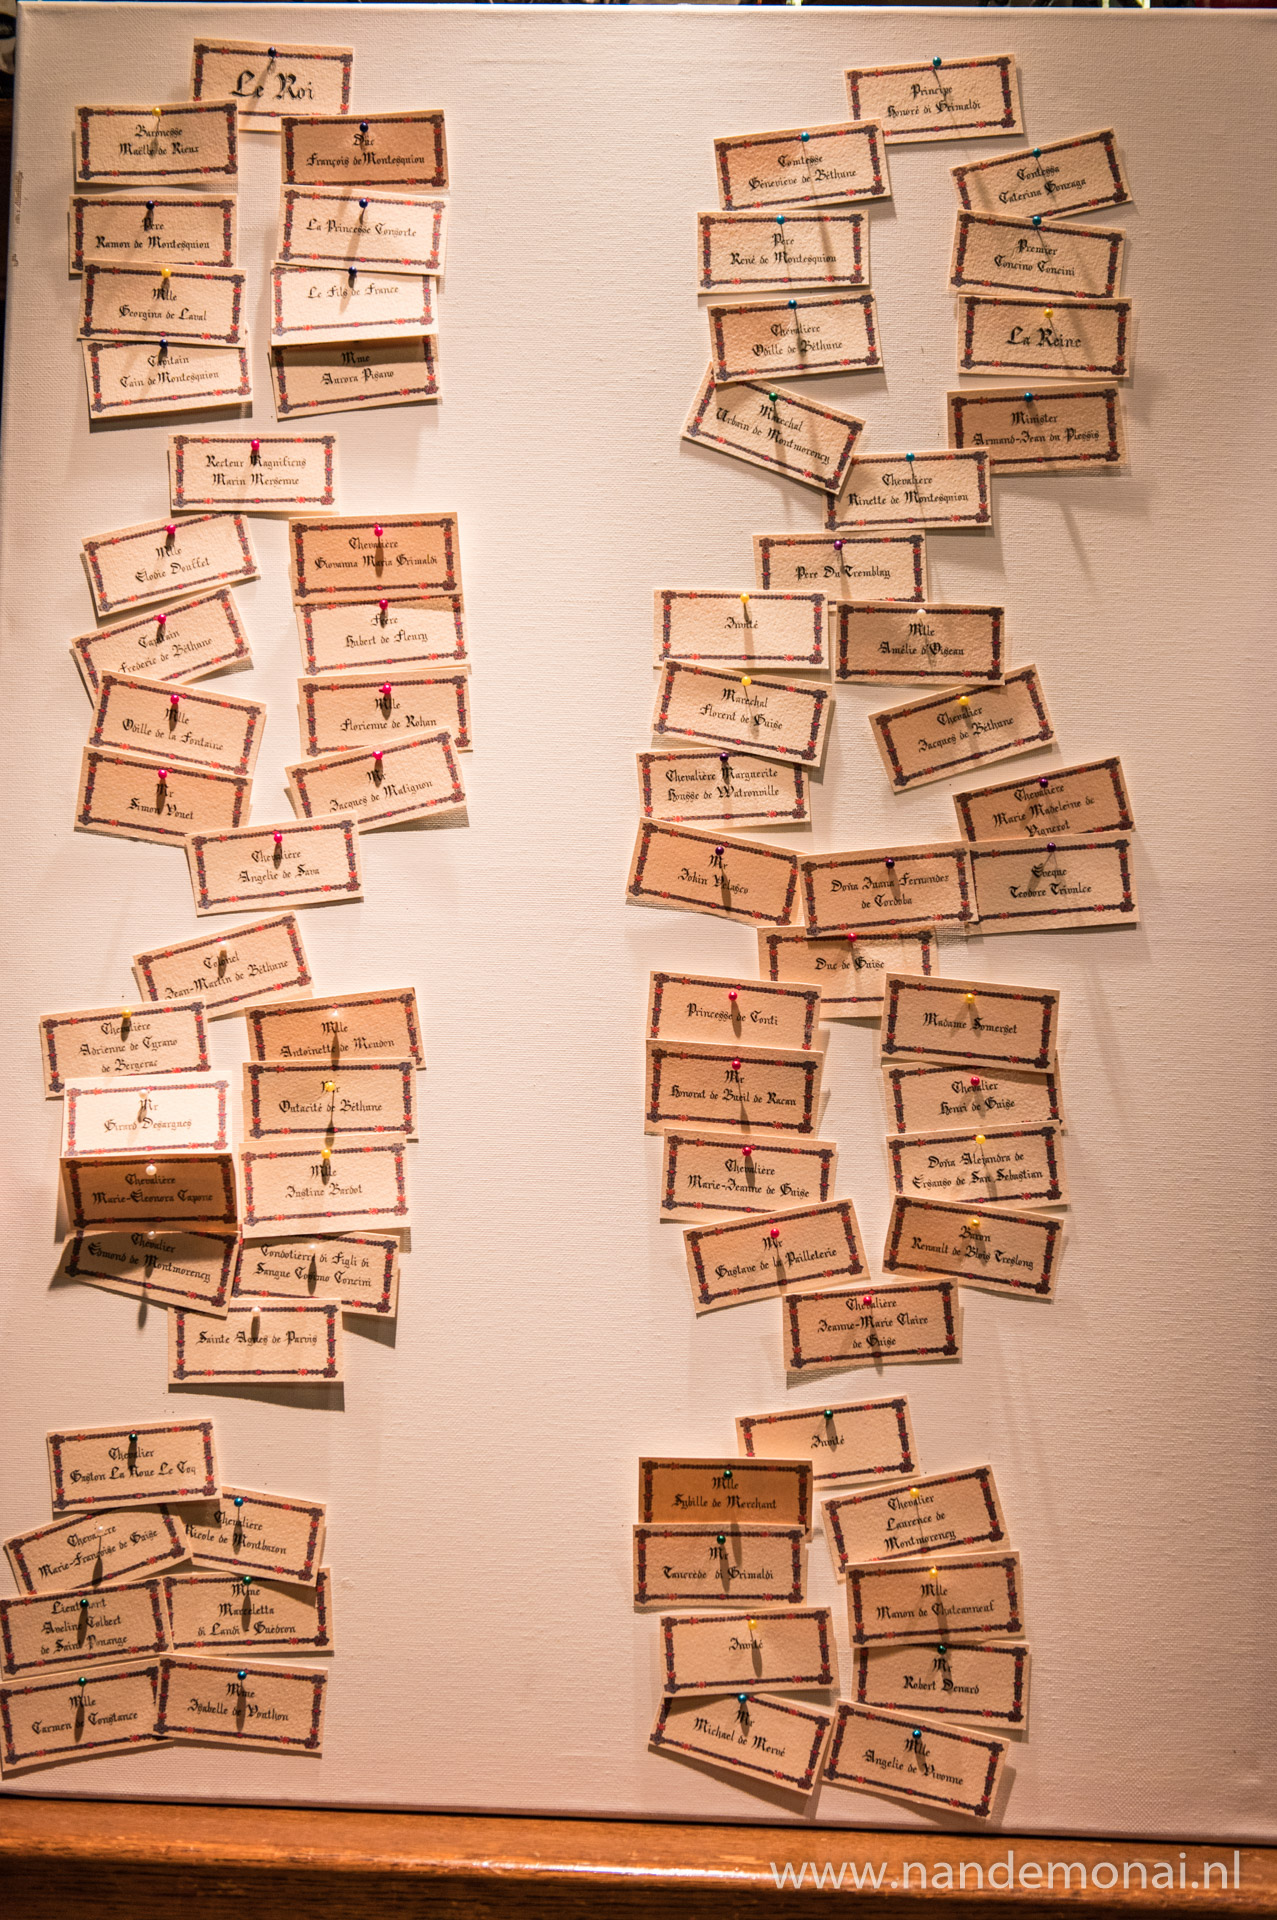 Le Roi
Baronesse
Maëlle de Rieux
Duc
François de Montesquiou
Père
Ramon de Montesquiou
La Princesse Consorte
Mlle
Georgina de Laval
Le Fils de France
Capitain
Cain de Montesquiou
Mme
Aurora Pisano
Recteur Magnificus
Marin Mersenne
Mlle
Élodie Douffet
Chevalière
Giovanna Maria Grimaldi
Capitain
Frederic de Béthune
Frère
Hubert de Fleury
Mlle
Odille de la Fontaine
Mlle
Florienne de Rohan
Mr
Simon Vouet
Mr
Jacques de Matignon
Chevalière
Angelie de Sava
Colonel
Jean-Martin de Béthune
Chevalière
Adrienne de Cyrano
de Bergerac
Mlle
Antoinette de Meudon
Mr
Girard Desargues
Mr
Outacité de Béthune
Chevalière
Marie-Eleonora Capone
Mlle
Justine Bardot
Chevalier
Edmond de Montmorency
Condotierre di Figli di
Sangue Cosimo Concini
Sainte Agnes de Parvis
Chevalier
Gaston La Roue Le Coq
Chevalière
Marie-Françoise de Guise
Chevalière
Nicole de Montbazon
Lieutenant
Aveline Colbert
de Saint Pouange
Mme
Marceletta
di Landi - Guédron
Mlle
Carmen de Constance
Mme
Isabelle de Ponthon
Principe
Honoré di Grimaldi
Comtesse
Géneviève de Béthune
Contessa
Caterina Gonzaga
Père
René de Montesquiou
Premier
Concino Concini
Chevalière
Odille de Béthune
La Reine
Marechal
Urbain de Montmorency
Minister
Armand-Jean du Plessis
Chevalière
Ninette de Montesquiou
Père Du Tremblay
Invité
Mlle
Amélie d'Oiseau
Marechal
Florent de Guise
Chevalier
Jacques de Béthune
Chevalière Marguerite
Housse de Watronville
Chevalière
Marie Madeleine de
Vignerot
Mr
Jokin Velasco
Doña Juana Fernandez
de Cordoba
Eveque
Teodore Trivulce
Duc de Guise
Princesse de Conti
Madame Somerset
Mr
Honorat de Bueil de Racan
Chevalier
Henri de Guise
Chevalière
Marie-Jeanne de Guise
Doña Alejandra de
Ersauso de San Sebastian
Mr
Gustave de la Pailleterie
Baron
Renault de Blois Treslong
Chevalière
Jeanne-Marie Claire
de Guise
Invité
Mlle
Sybille de Merchant
Chevalier
Laurence de
Montmorency
Mr
Tancrède di Grimaldi
Mlle
Manon de Chateauneuf
Invité
Mr
Robert Denard
Mr
Michael de Mervé
Mlle
Angelie de Vivonne
www.nandemonai.nl